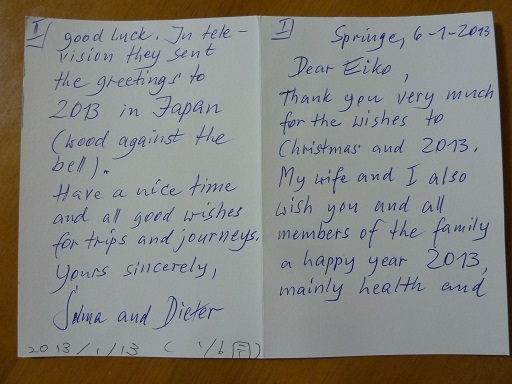 I
Springe, 6-1-2013
Dear Eiko,
Thank you very much
for the wishes to
Christmas and 2013.
My wife and I also
wish you and all
members of the family
a happy year 2013,
mainly health and
II
good luck. In tele-
vision they sent
the greetings to
2013 in Japan
(wood against the
bell).
Have a nice time
and all good wishes
for trips and journeys.
Yours sincerely,
and Dieter
2013/1/13 ( 1/6